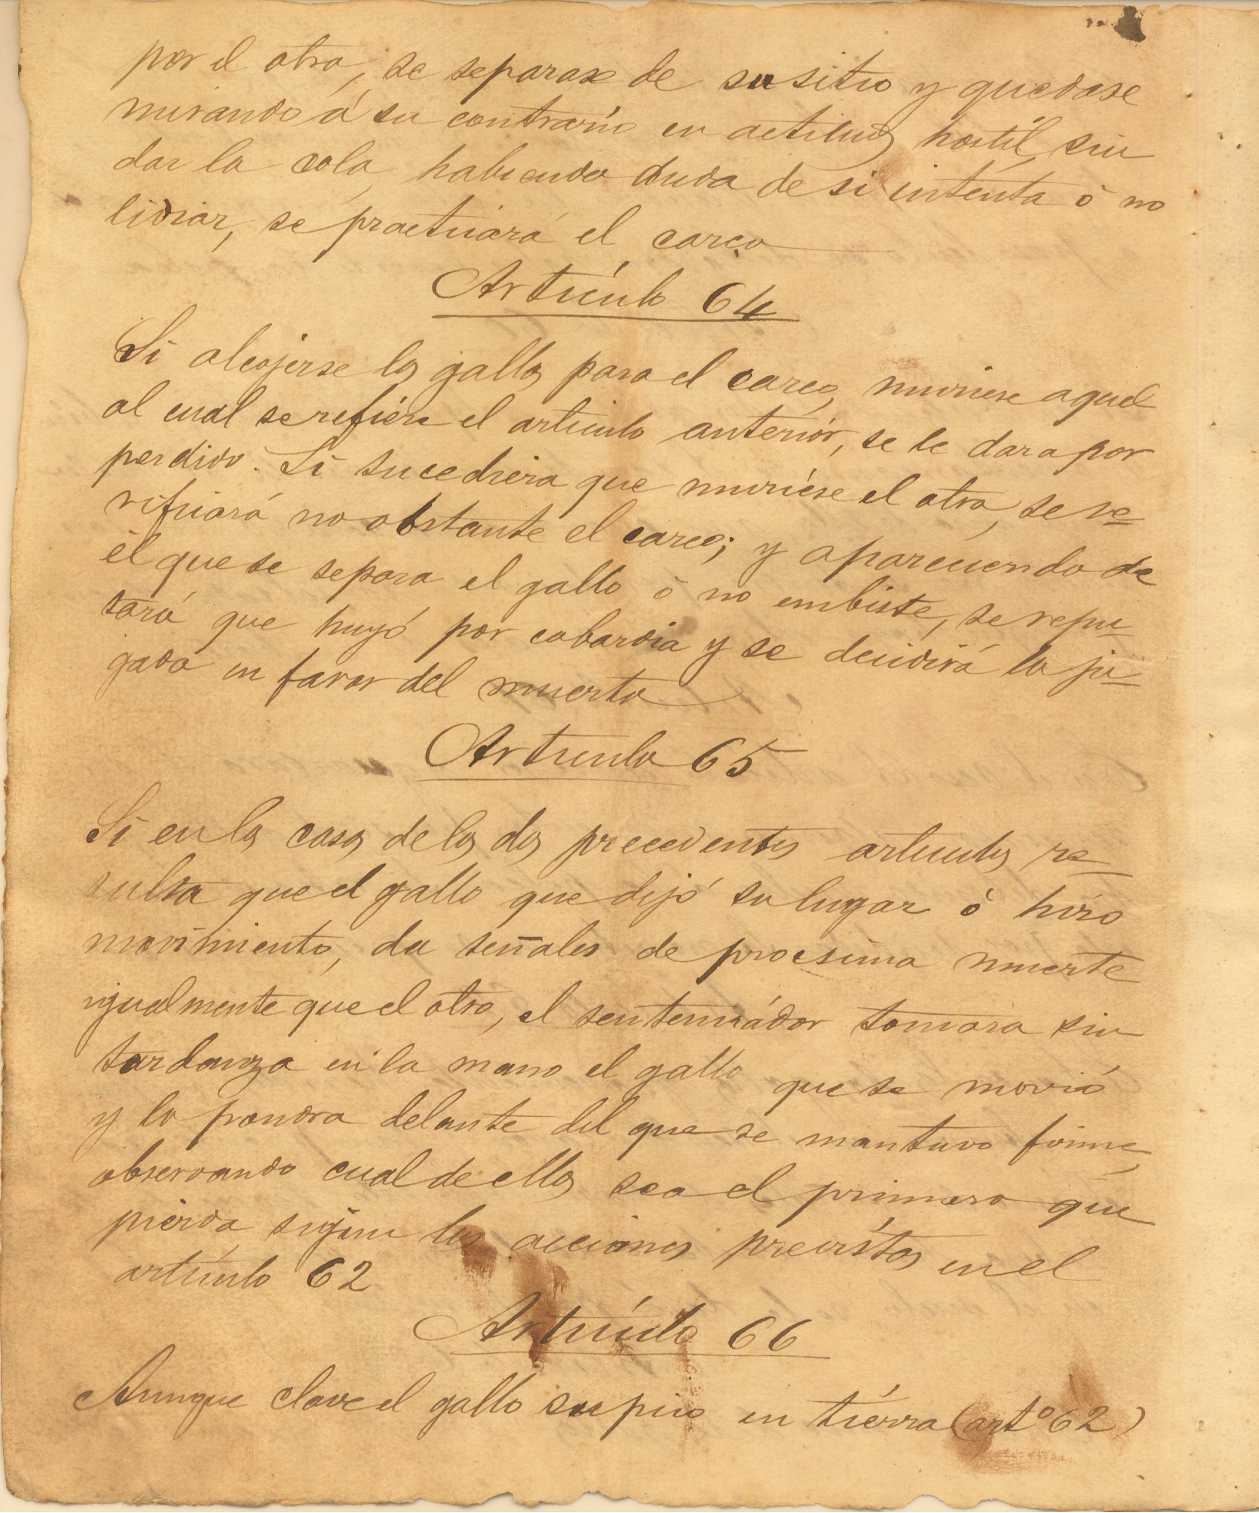 por el otro, se separase de su sitio y quedase
mirando á su contrario en actitud hostil, sin
dar la cola, habiendo duda de si intenta ó no
lidiar, se practicará el careo
Artículo 64
Si al cojerse los gallos para el careo, muriese aquel
al cual se refiere el artículo anterior, se le dara por
perdido. Si sucediera que muriése el otro, se ve-
rificará no obstante el careo; y apareciendo de
él que se separa el gallo ó no embiste, se repu-
tará que huyó por cobardia y se decidirá la ju-
gada en favor del muerto
Artículo 65
Si en los casos de los dos precedentes artículos re-
sulta que el gallo que dejó su lugar ó hizo
movimiento, da señales de procsima muerte
igualmente que el otro, el sentenciador tomara sin
tardanza en la mano el gallo que se movió
y lo pondra delante del que se mantuvo firme,
observando cual de ellos sea el primero que
pierda segun las acciones previstas en el
artículo 62
Artículo 66
Aunque clave el gallo su pico en tiérra (artº 62)